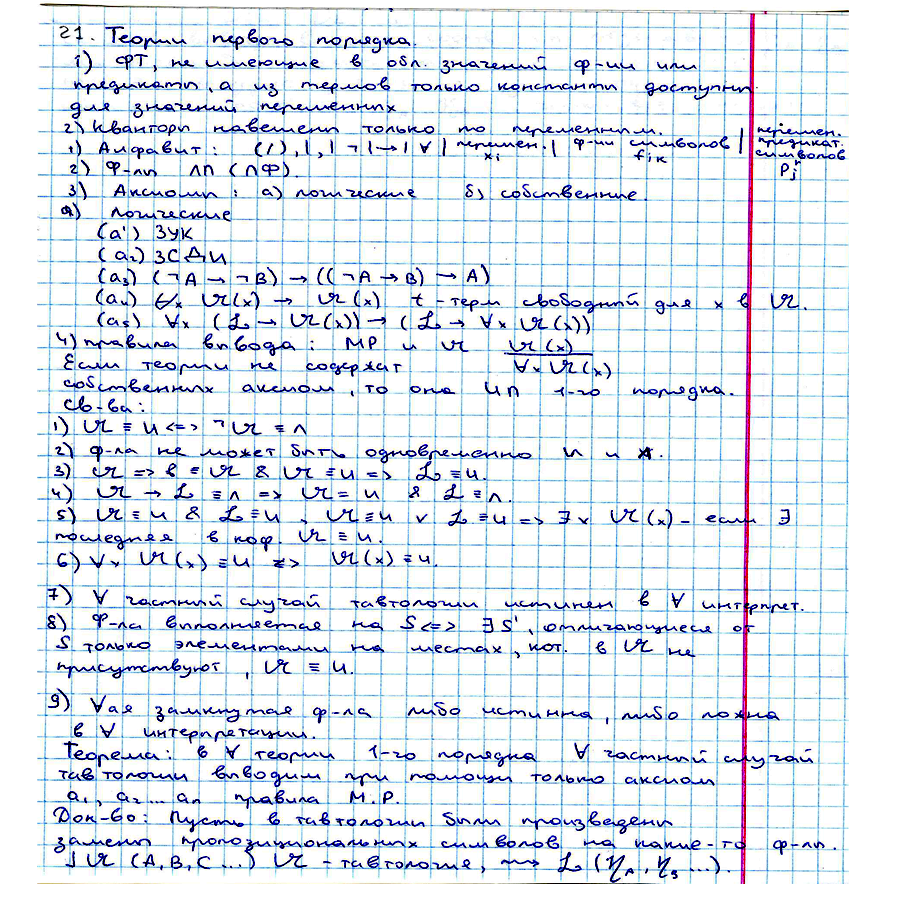 21. Теории первого порядка.
1) ФТ, не имеющие в обл. значений ф-ии или
предикаты, а из термов только константы доступны
для значений переменных
2) Кванторы навешены только по переменным.
1) Алфавит: (,), |, | ¬ | → | ∀ | перемен. x_i | ф-ии символов f_ik | перемен. предикат. символов P_j^n
2) Ф-лы ЛП (ЛФ).
3) Аксиомы: а) логические б) собственные.
а) логические
(a¹) ЗУК
(a₂) ЗСДИ
(a₃) (¬A → ¬B) → ((¬A → B) → A)
(a₄) ∀x 𝔄(x) → 𝔄(x) t - терм свободный для x в 𝔄.
(a₅) ∀x (ℒ → 𝔄(x)) → (ℒ → ∀x 𝔄(x))
4) правила вывода: MP и 𝔄 𝔄(x) / ∀x 𝔄(x)
Если теории не содержат
собственных аксиом, то она ИП 1-го порядка.
Св-ва:
1) 𝔄 ≡ и <=> ¬𝔄 ≡ л
2) ф-ла не может быть одновременно и и л.
3) 𝔄 => в ≡ 𝔄 & 𝔄 ≡ и => ℒ ≡ и.
4) 𝔄 → ℒ ≡ л => 𝔄 = и & ℒ ≡ л.
5) 𝔄 ≡ и & ℒ ≡ и, 𝔄 ≡ и ∨ ℒ ≡ и => ∃x 𝔄(x) - если ∃
последняя в коф. 𝔄 ≡ и.
6) ∀x 𝔄(x) ≡ и <=> 𝔄(x) ≡ и.
7) ∀ частный случай тавтологии истинен в ∀ интерпрет.
8) Ф-ла выполняется на S <=> ∃ S', отличающиеся от
S только элементами на местах, кот. в 𝔄 не
присутствуют, 𝔄 ≡ и.
9) ∀ая замкнутая ф-ла либо истинна, либо ложна
в ∀ интерпретации.
Теорема: в ∀ теории 1-го порядка ∀ частный случай
тавтологии выводим при помощи только аксиом
a₁, a₂ ... aп правила M.P.
Док-во: Пусть в тавтологии были произведены
замены пропозициональных символов на какие-то ф-лы.
] 𝔄 (A, B, C ...) 𝔄 - тавтология, ⟿ ℒ (η_A, η_B ...).